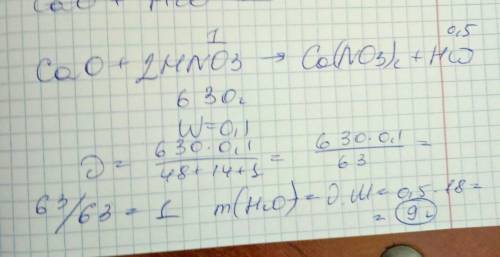 CaO + HCl
1 0,5
CaO + 2HNO3 → Ca(NO3)2 + H2O
630г
W=0,1
∂ = 630·0,1 / 48+14+1 = 630·0,1 / 63 =
63/63 = 1 m(H2O) = ∂·M = 0,5·18 =
= 9г